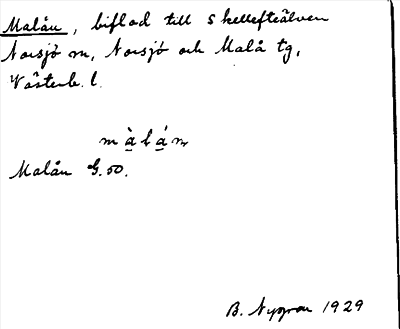 Malån, biflod till Skellefteälven
Norsjö m, Norsjö och Malå tg,
Västerb. l.
màlán
Malån G.50.
B. Nygren 1929